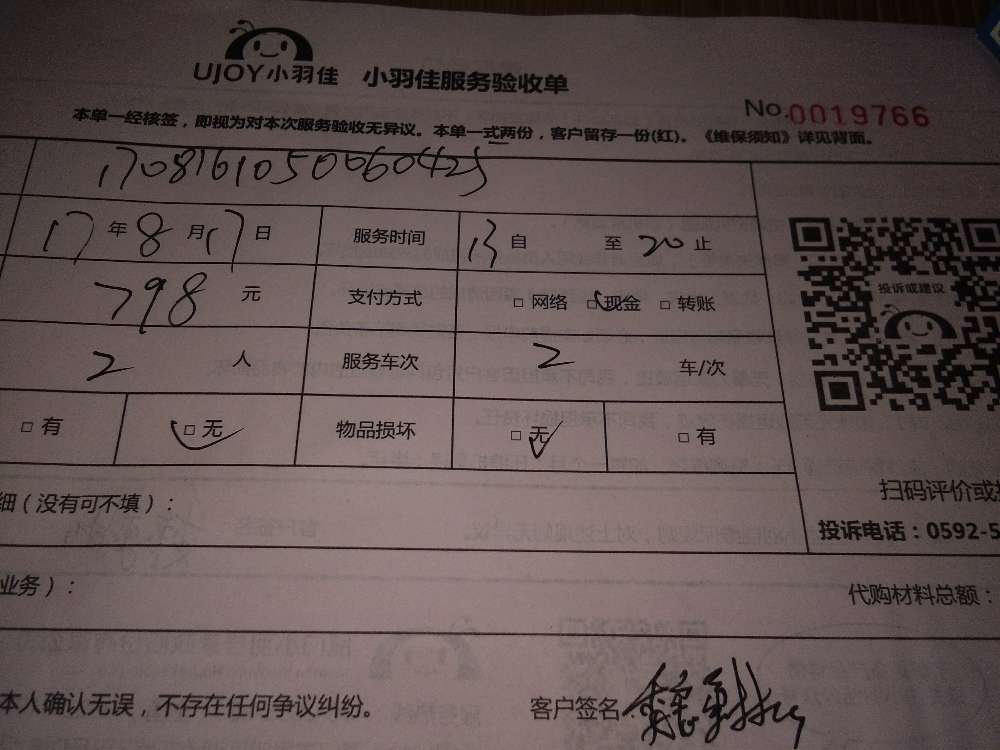 UJOY小羽佳 小羽佳服务验收单
No.0019766
本单一经核签，即视为对本次服务验收无异议。本单一式两份，客户留存一份(红)。《维保须知》详见背面。
1708161050060425
17年8月17日 服务时间 13自 至20止
798元 支付方式 □网络 □现金 □转账
2人 服务车次 2车/次
□有 □无 物品损坏 □无 □有
投诉或建议
扫码评价或
细（没有可不填）：
投诉电话：0592-5
业务）：
代购材料总额：
本人确认无误，不存在任何争议纠纷。
客户签名